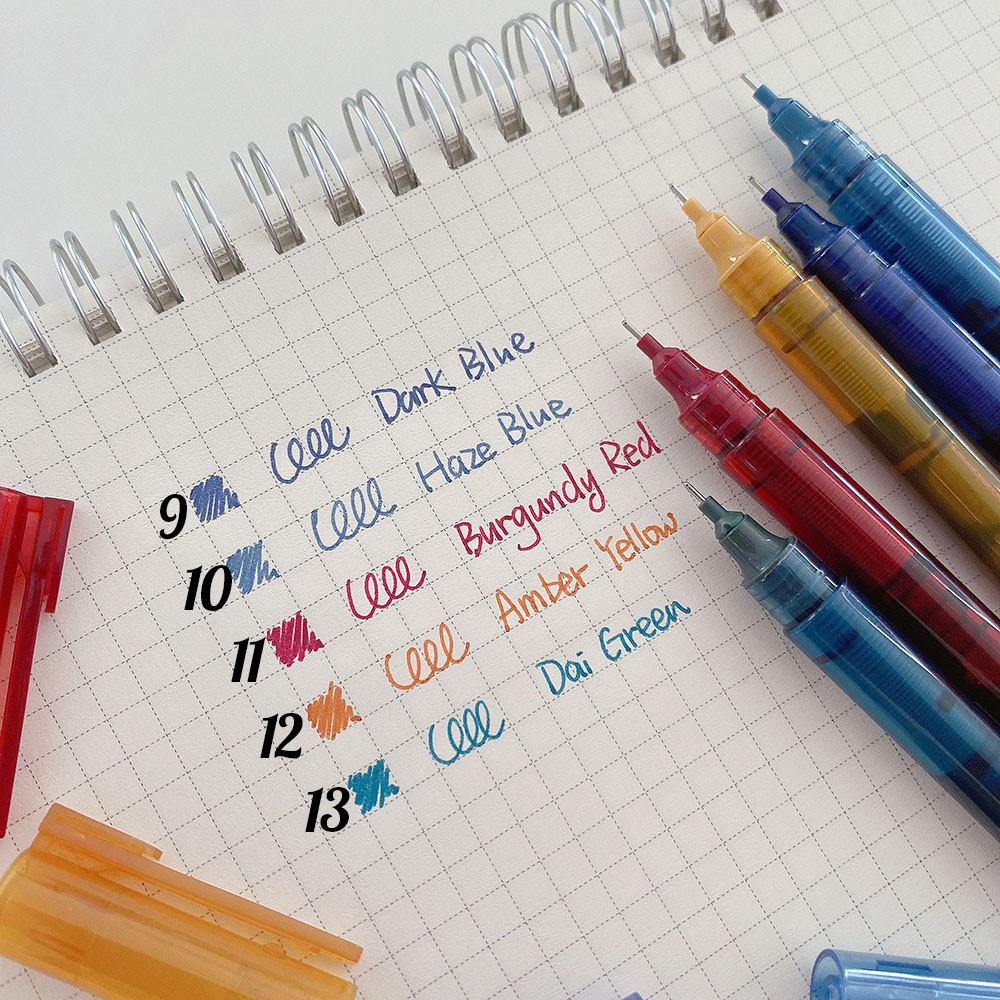 9 Dark Blue
10 Haze Blue
11 Burgundy Red
12 Amber Yellow
13 Dai Green